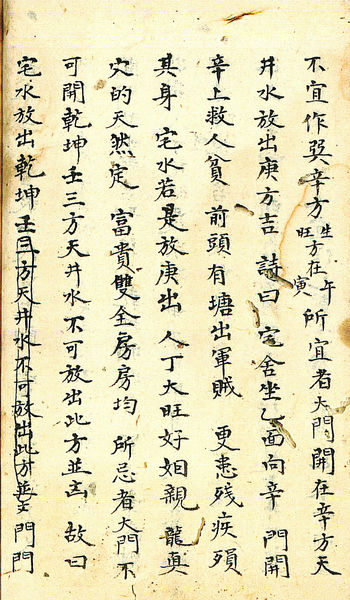 不宜作巽辛方生旺方在午寅所宜者大門開在辛方天
井水放出庚方吉 詩曰 宅舍坐乙面向辛 門開
辛上救人貧 前頭有塘出軍賊 更患殘疾損
其身 宅水若是放庚出 人丁大旺好姻親 龍真
穴的天然定 富貴雙全房房均 所忌者大門不
可開乾坤壬三方天井水不可放出此方並凶 故曰
宅水放出乾坤壬三方天井水不可放出此方並凶 門門